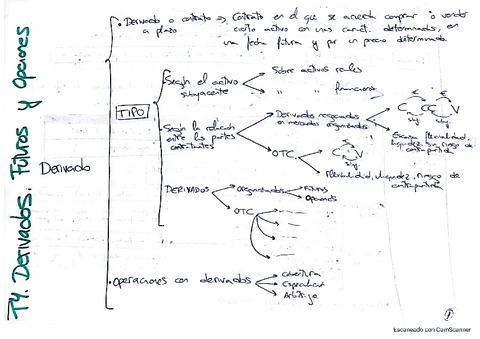 T4. Derivados. Futuros y Opciones
Derivado
• Derivado o contrato → Contrato en el que se acuerda comprar o vender
a plazo cierto activo con unas caract. determinadas, en
una fecha futura y por un precio determinado
TIPO
• Según el activo
subyacente
Sobre activos reales
" " financieros
• Según la relación
entre las partes
contratantes
Derivados negociados
en mercados organizados
C V
Escasa flexibilidad,
liquidez, sin riesgo
de contrapartida
OTC
C V
Flexibilidad, liquidez, riesgo de
contrapartida
DERIVADOS
organizados
Futuros
Opciones
OTC
• Operaciones con derivados
Cobertura
Especulación
Arbitraje
1
Escaneado con CamScanner